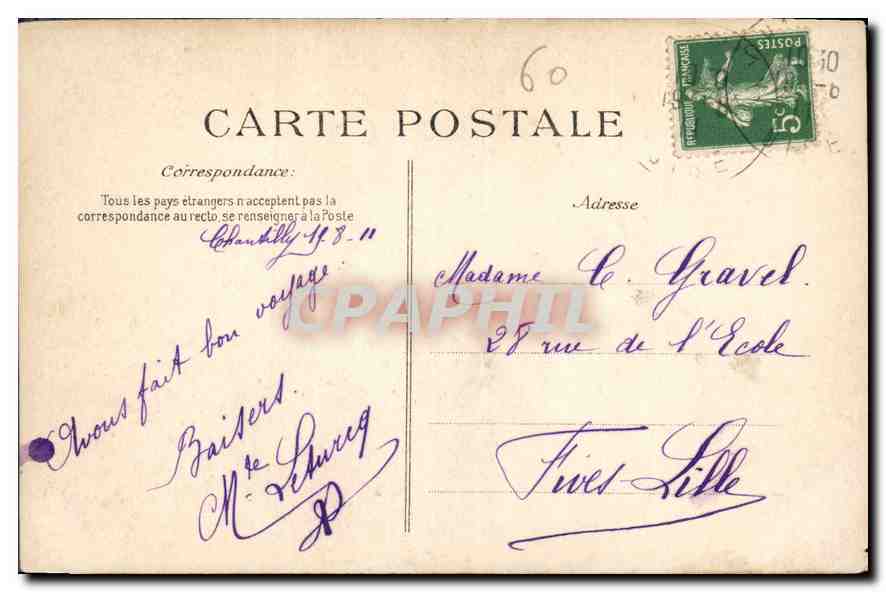 60
RÉPUBLIQUE FRANÇAISE
POSTES
5c
CARTE POSTALE
Correspondance:
Tous les pays étrangers n'acceptent pas la
correspondance au recto, se renseigner à la Poste
Chantilly 19 8-11
Avons fait bon voyage.
Baisers.
Mte Leturcq
Adresse
Madame C. Gravel.
28 rue de l'Ecole
Fives-Lille
CPAPHIL